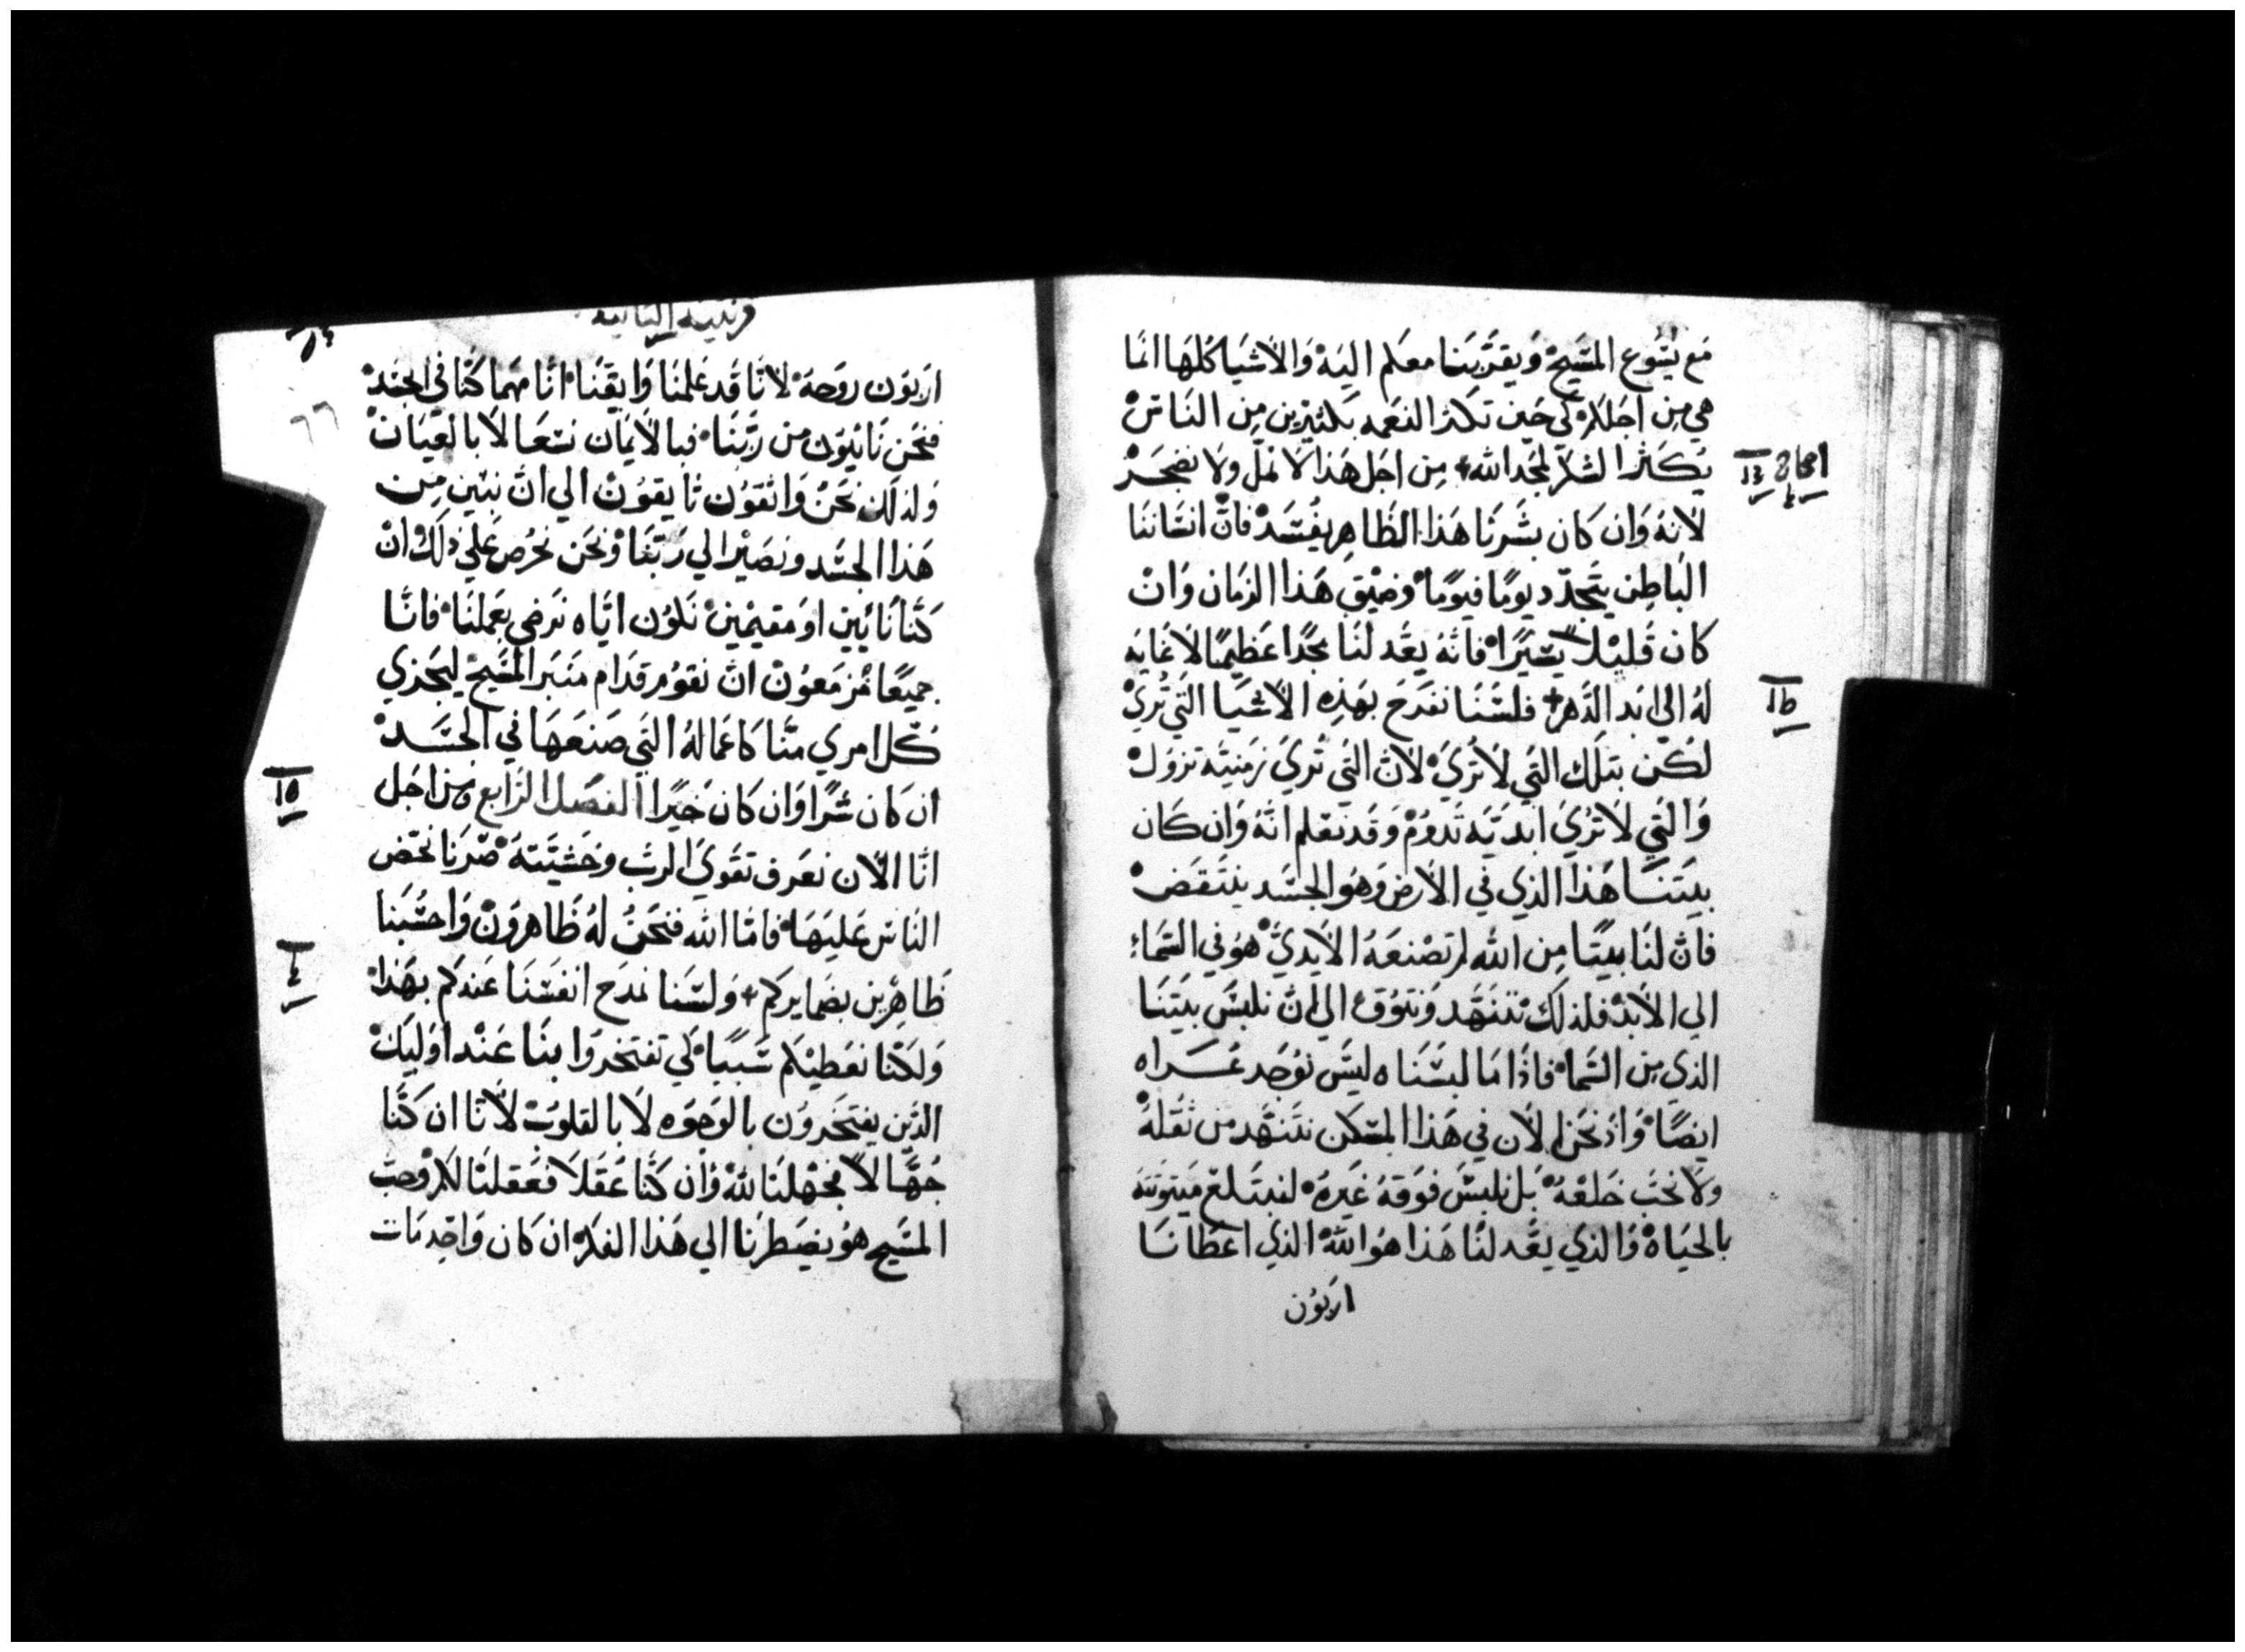 مَع يَسُوع المسَيحْ وَيقرَّبنَا معَكم اليَهْ وَالاشيَا كلهَا انمَا
هي مِن اجَلكمْ كي حَين تكثر النعمه بَكثيرين مِن النَاسْ
يَكثرا الشكر لمجَد الله + مِن اجَل هَذا لا نملّ ولا نضجَرْ
لانهُ وَان كان بشَرنَا هَذا الظَاهِر يفُسَدْ فانّ انسَاننَا
البَاطِن يتَجدّد يومًا فيومًا وضيْق هَذا الزمَان وَانْ
كان قليْلاً يسَيرًا فانهُ يعَد لنَا مجَدًا عظيْمًا لا غايَه
لهُ الي ابَد الدَهر + فلسَنَا نفرَح بهَذِه الاشيَا التي تُريْ
لكن بتلك التي لا تُريَ لانّ التي تُريَ زمنيَّه تزوُلْ
وَالتي لا تُريَ ابَديَّه تدوُمْ وَقد نعَلم انهُ وَان كَان
بيَتنَا هَذا الذي في الارض وَهوَ الجسَد ينتَقضْ
فانّ لنَا بيَتًا مِن الله لم تصْنعَهُ الايَديْ هوَ في السَمَاء
الي الابَدْ فلذ لكْ نتنهَّد وَنتوُق الي انّ نلبسَ بيَتنَا
الذي مِن السَمَا فاذا مَا لبسَنَاه ليسَ نوُجَد عُـراه
ايضًا وَاذ نحَن الان في هَذا المسَكن نتنَهَّد مِن ثقلهُ
ولا نحبّ خَلعْهُ بَل نلبسَ فوَقهُ غيَرهُ لتبتَـلع ميَتوتتهَ
بالحَيَاهْ وَالذي يعَد لنَا هَذا هوَ اللهْ الذي اعَطانَا
اربَوُن
قرنتيه الثانيه
٦٦
اربَوُن روحَهْ لانّا قد عَلمنَا وَايقنَا انّا مهمَا كنّا في الجسَدْ
فنحَن نَائيَوُن من ربّنَا فبالايمَان نسَعَا لا بالعيَانْ
وَلذ لك نحَنُ وَاثقوُن تايقوُنْ الي انّ نبيَن مِن
هَذا الجسَد ونصَيْر الي رَبّنَا وَنحَن نحَرُص عَلي ذلكْ انْ
كنّا نَائيين او مقيمْيَنْ نكوُن ايّاه نرَضي بعَملنَا فانّا
جميَعًا مُزمَعوُنْ انّ نقوُم قدَام منَبَر المسَيحْ ليجَزي
كل امري منّا كاعمَالهُ التي صَنعَهَا في الجسَدْ
ان كان شرًا وَان كان خَيرًا الفصَل الرَابع مِن اجَل
انّا الان نعَرف تقوَي الربّ وخَشيَتهْ صَرنَا نحَض
النَاس عَليهَا فامّا الله فنحَنُ لهُ ظَاهروُنْ وَاحسَبنَا
ظَاهِرين بضمَايركم + وَلسَنا نمدَح انفسَنَا عَندكم بهَذا
وَلكنّا نعَطيْكم سَببًا كي تفتخروَا بنَا عَندَ اوَليكْ
الذين يفتخَروُن بالوَجوَه لا بالقلوَبْ لانّا ان كنّا
جُهَّالاً فجَهْلنَا للهْ وَان كنّا عُقلا فعَقلنَا لكمْ وحبّ
المسَيح هوَ يضَطرنَا الي هَذا الفكرْ ان كان وَاحَد مَات